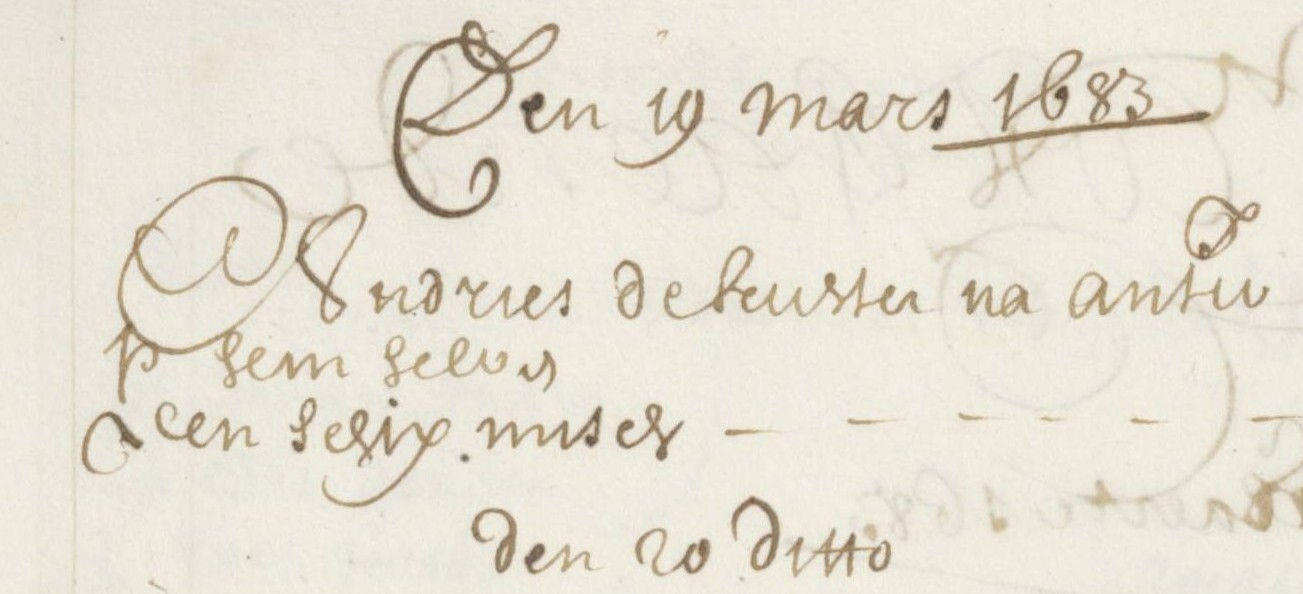 Den 19 mars 1683
Andries de keuster na antw
p sem selven
een selix muts en
den 20 ditto